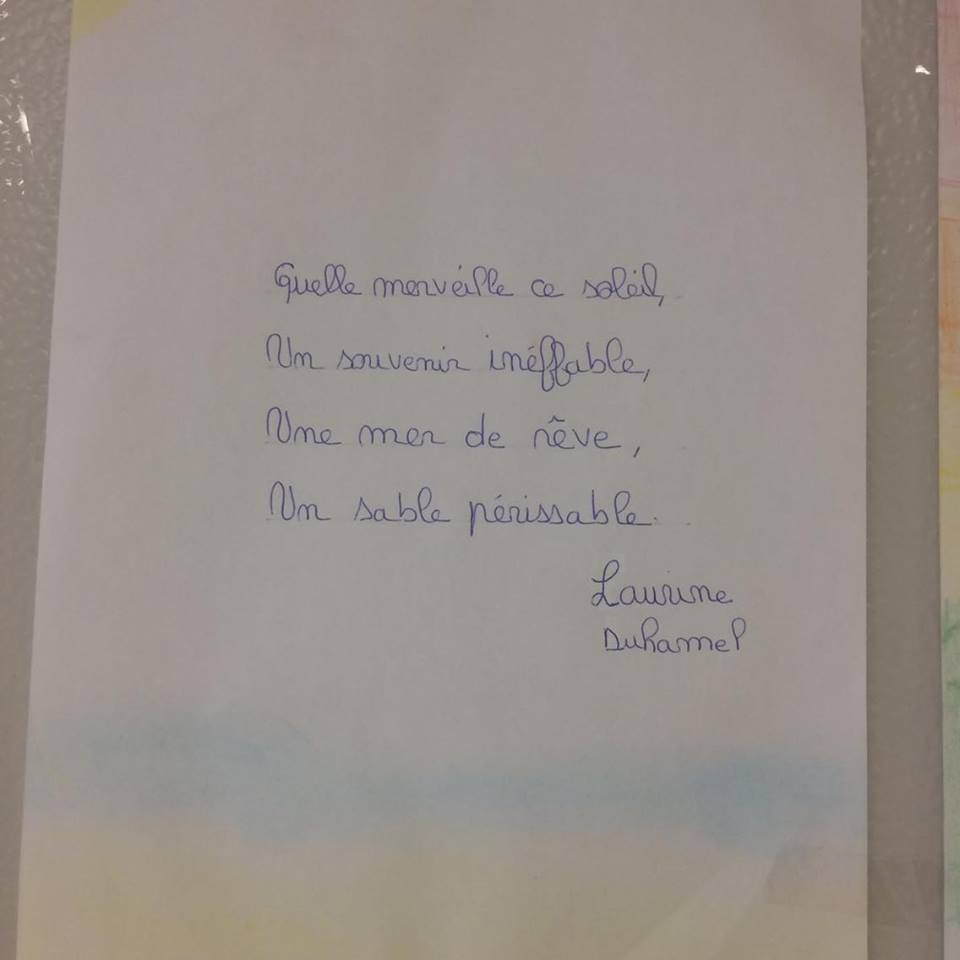 Quelle merveille ce soleil,
Un souvenir inéffable,
Une mer de rêve,
Un sable périssable.
Laurine
Duhamel